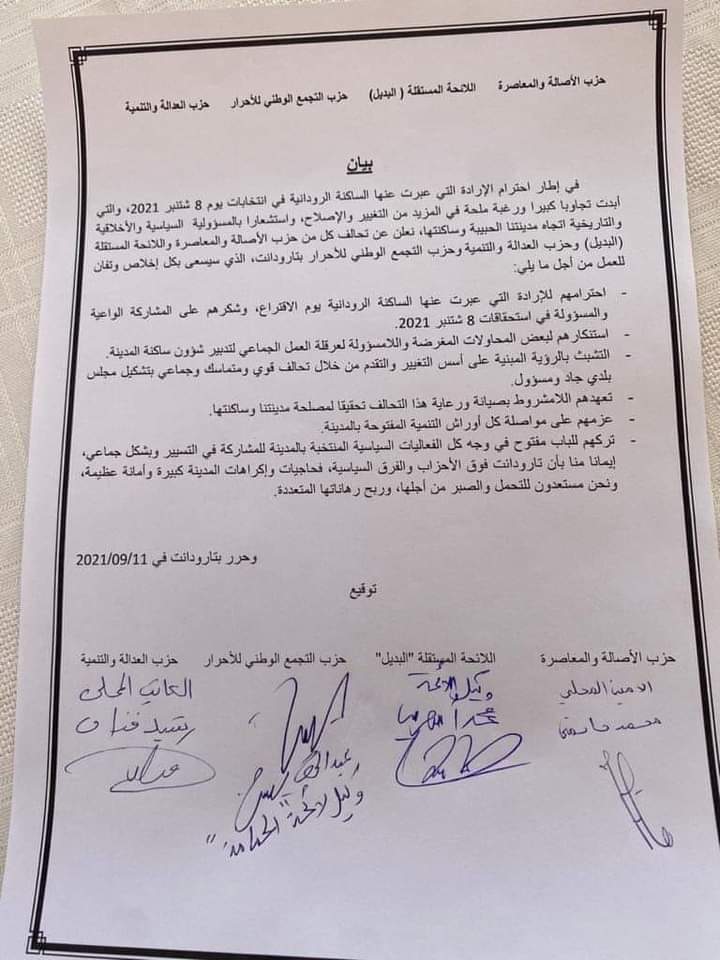 حزب الأصالة والمعاصرة اللائحة المستقلة ( البديل) حزب التجمع الوطني للأحرار حزب العدالة والتنمية
بيان
في إطار احترام الإرادة التي عبرت عنها الساكنة الرودانية في انتخابات يوم 8 شتنبر 2021، والتي
أبدت تجاوبا كبيرا ورغبة ملحة في المزيد من التغيير والإصلاح، واستشعارا بالمسؤولية السياسية والأخلاقية
والتاريخية اتجاه مدينتنا الحبيبة وساكنتها، نعلن عن تحالف كل من حزب الأصالة والمعاصرة واللائحة المستقلة
(البديل) وحزب العدالة والتنمية وحزب التجمع الوطني للأحرار بتارودانت، الذي سيسعى بكل إخلاص وتفان
للعمل من أجل ما يلي:
- احترامهم للإرادة التي عبرت عنها الساكنة الرودانية يوم الاقتراع، وشكرهم على المشاركة الواعية
والمسؤولة في استحقاقات 8 شتنبر 2021.
- استنكارهم لبعض المحاولات المغرضة واللامسؤولة لعرقلة العمل الجماعي لتدبير شؤون ساكنة المدينة.
- التشبث بالرؤية المبنية على أسس التغيير والتقدم من خلال تحالف قوي ومتماسك وجماعي بتشكيل مجلس
بلدي جاد ومسؤول.
- تعهدهم اللامشروط بصيانة ورعاية هذا التحالف تحقيقا لمصلحة مدينتنا وساكنتها.
- عزمهم على مواصلة كل أوراش التنمية المفتوحة بالمدينة.
- تركهم للباب مفتوح في وجه كل الفعاليات السياسية المنتخبة بالمدينة للمشاركة في التسيير وبشكل جماعي،
إيمانا منا بأن تارودانت فوق الأحزاب والفرق السياسية، فحاجيات وإكراهات المدينة كبيرة وأمانة عظيمة،
ونحن مستعدون للتحمل والصبر من أجلها، وربح رهاناتها المتعددة.
وحرر بتارودانت في 2021/09/11
توقيع
حزب الأصالة والمعاصرة اللائحة المستقلة "البديل" حزب التجمع الوطني للأحرار حزب العدالة والتنمية
الامين المحلي وكيل اللائحة الكاتب المحلي
محمد رشيد
وكيل لائحة "الحمامة"